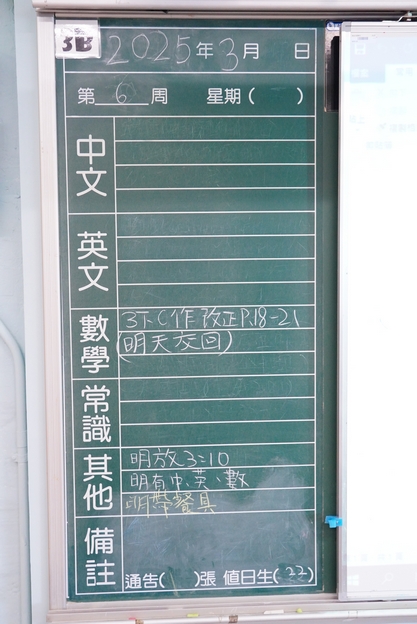 3B
2025年3月 日
第 6 周 星期( )
中文
英文
數學
3下C作改正P.18-21
(明天交回)
常識
其他
明放3:10
明有中、英、數
明帶餐具
備註
通告( )張 值日生(22)